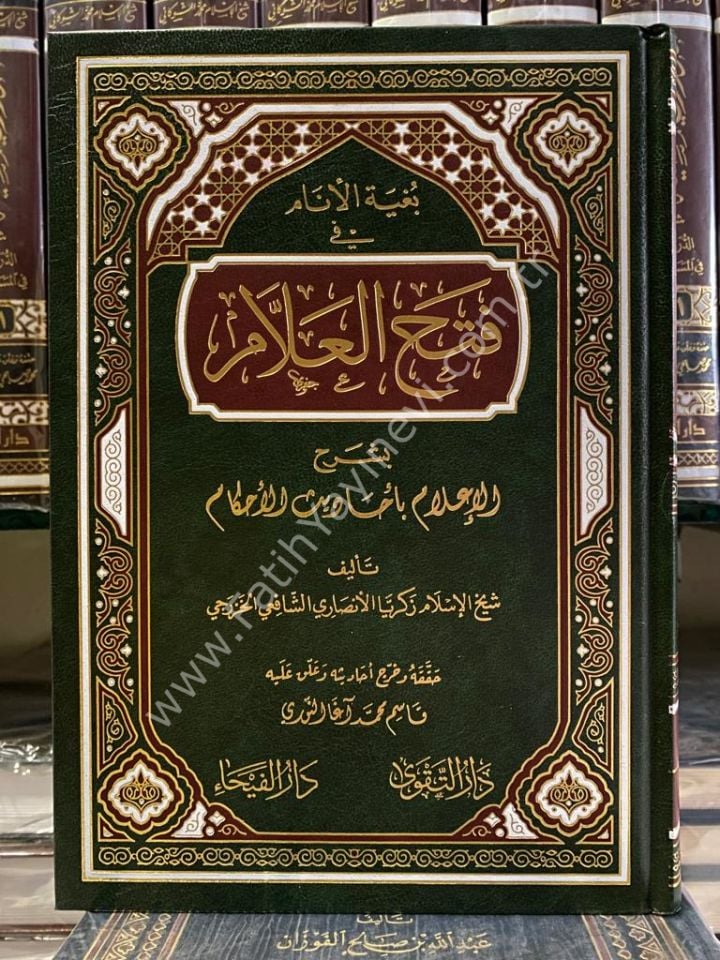 بُغية الأنام
في
فتح العلام
بشرح
الإعلام بأحاديث الأحكام
تأليف
شيخ الإسلام زكريا الأنصاري الشافعي الخزرجي
حققه وخرج أحاديثه وعلق عليه
قاسم محمد آغا النوري
دار التقوى
دار الفيحاء
www.FatihYayinevi.com.tr
تأليف
عبد الله بن صالح الفوزان